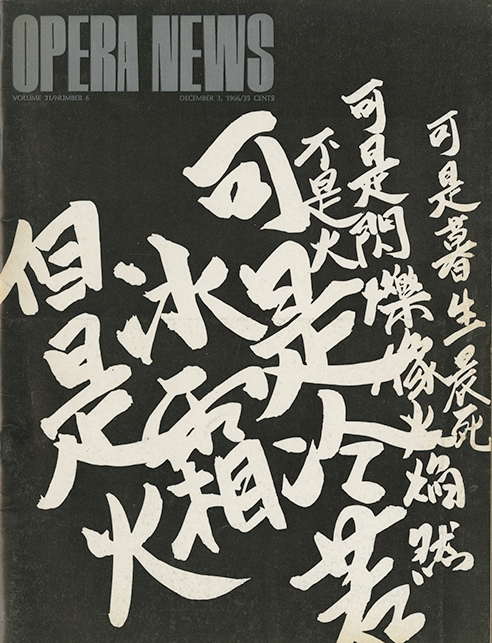 OPERA NEWS
VOLUME 31/NUMBER 6
DECEMBER 3, 1966/35 CENTS
可是暮生晨死
可是閃爍像火焰然
不是火
可是冷若
冰霜
但是火